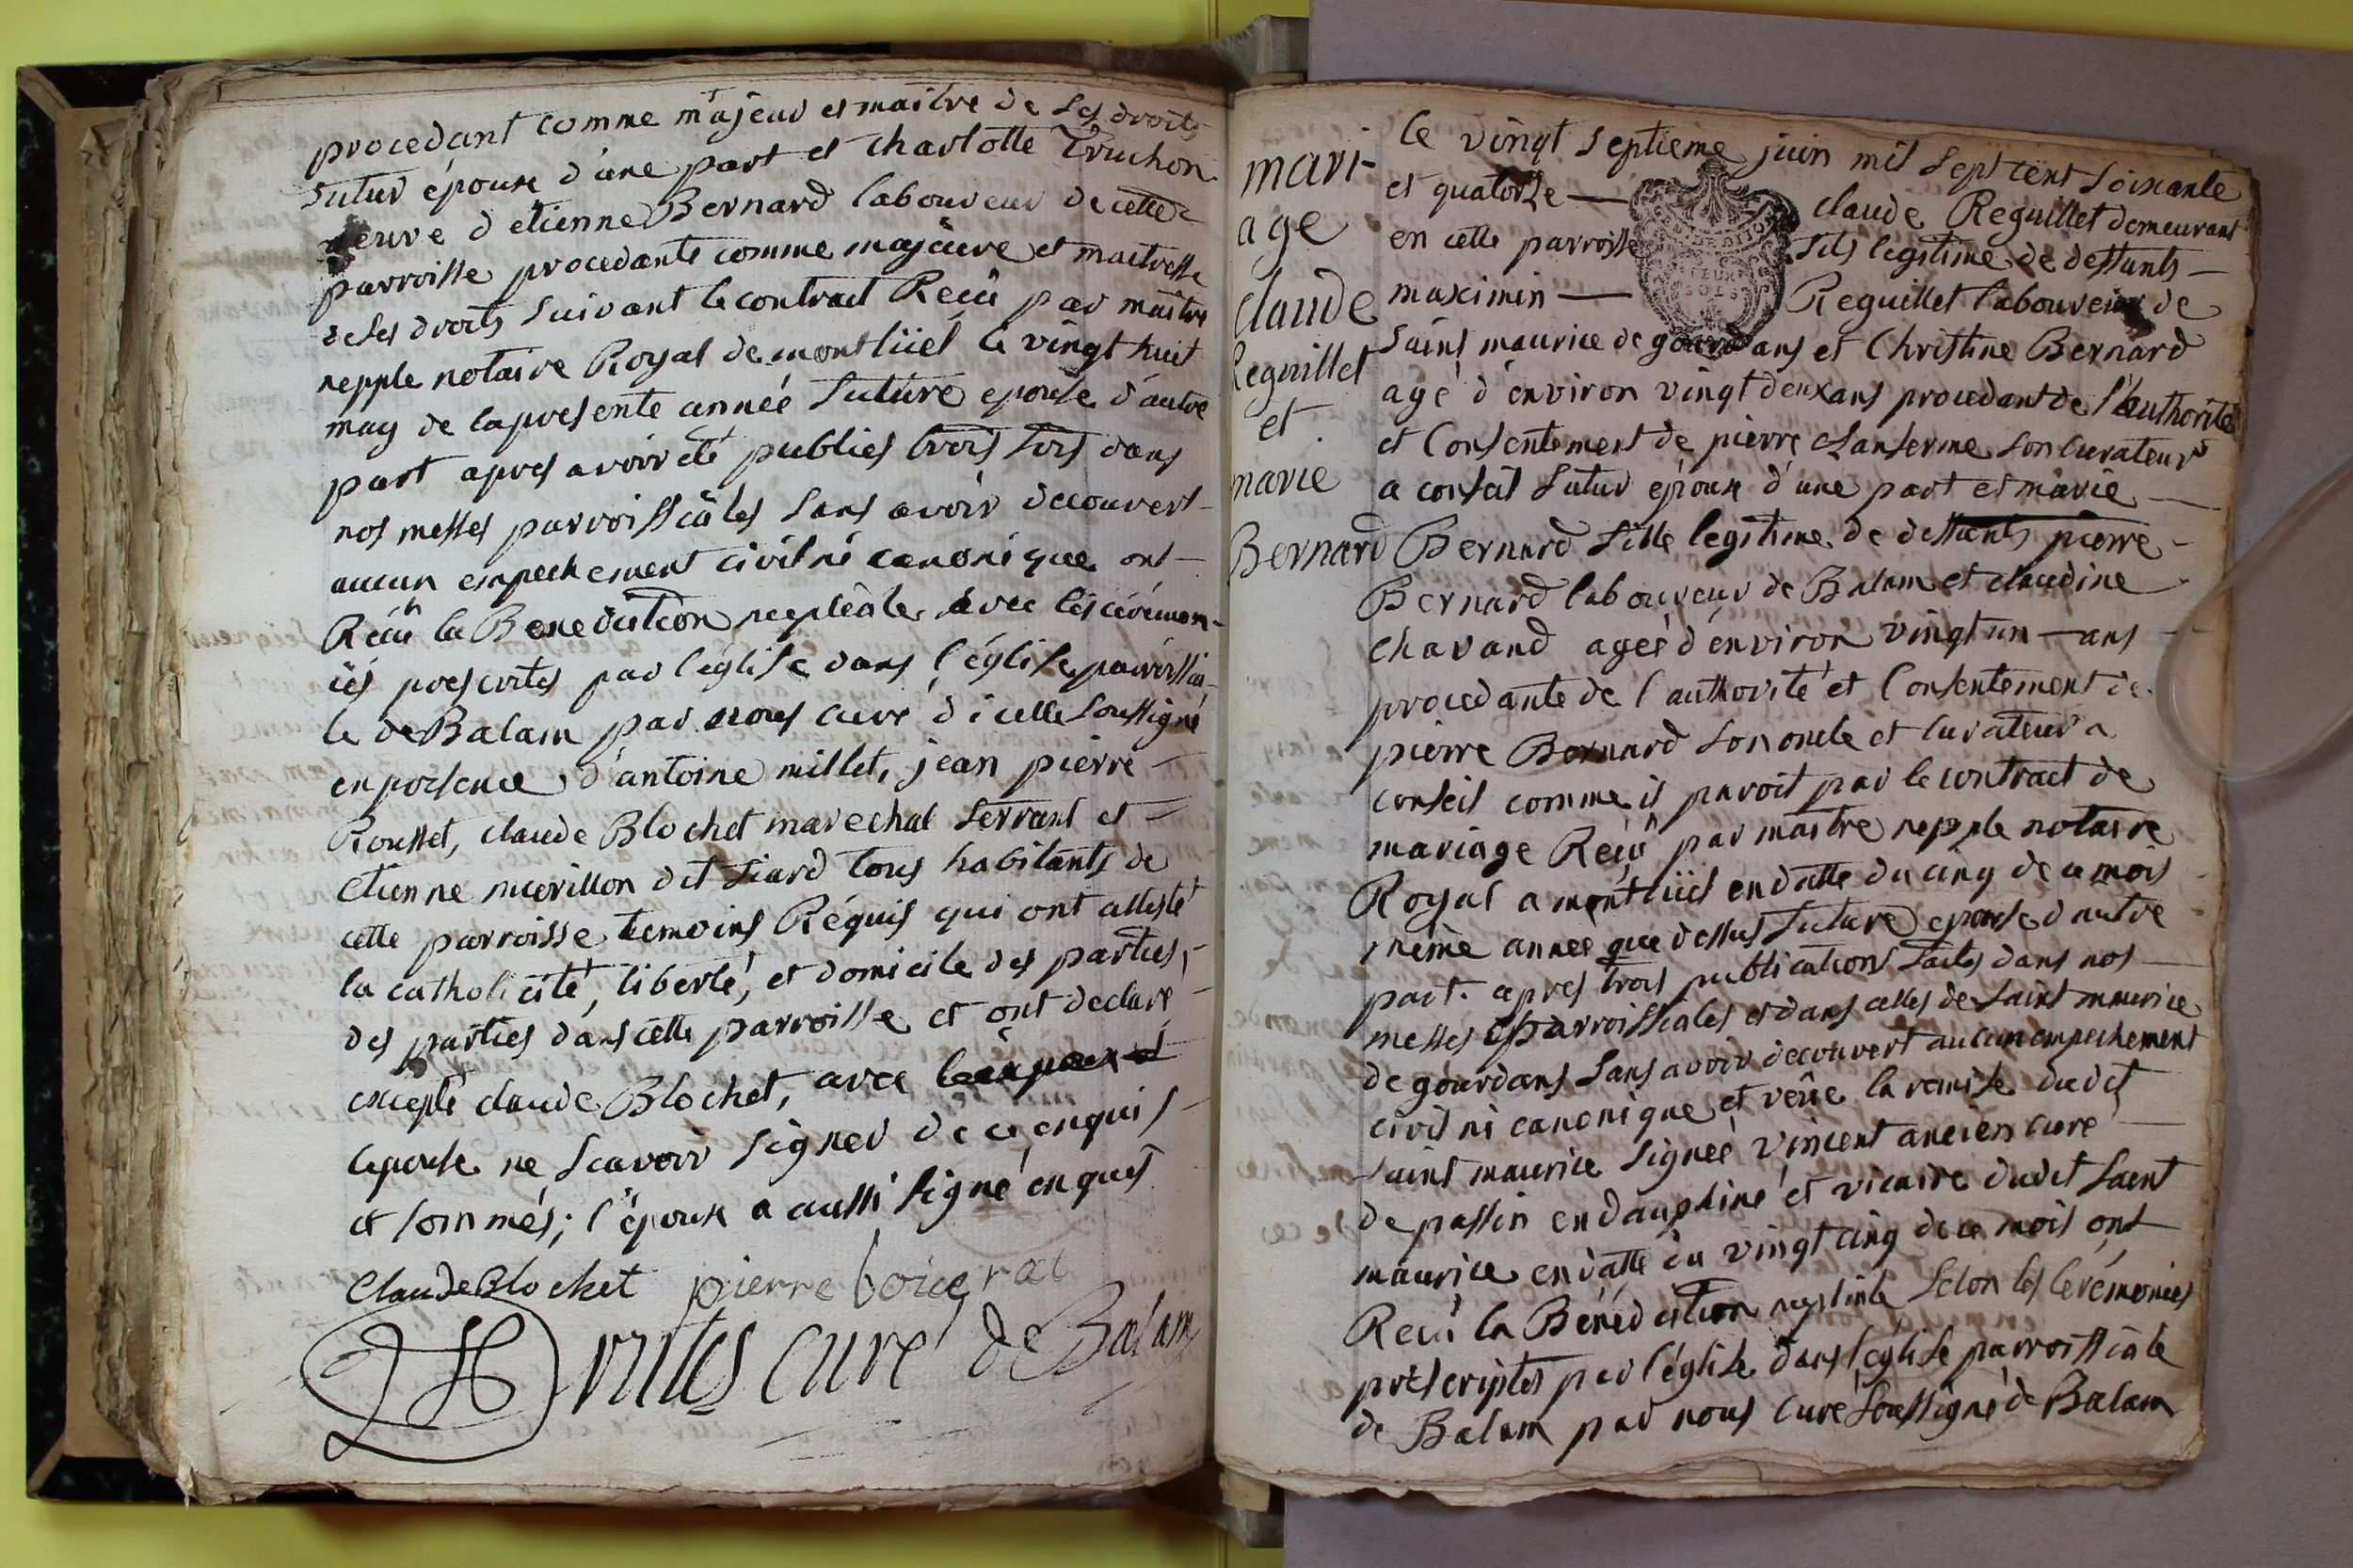 procedant comme majeur et maitre de ses droits
futur époux d'une part et charlotte Truchon
veuve d'etienne Bernard laboureur de cette
parroisse procedante comme majeure et maitresse
de ses droits suivant le contract Recû par maitre
nepple notaire Royal de montlüel le vingt huit
may de la presente année future epouse d'autre
part apres avoir été publiés trois fois dans
nos messes parroissiâles sans avoir decouvert
aucun empechement civil ni canonique ont
Recû la Benediction nuptiale avec les céremon-
iës prescrites par l'église dans l'église parroissia-
le de Balam par nous curé d'icelle soussigné
en presence d'antoine millet, jean pierre
Rousset, claude Blochet marechal ferrant et
etienne murillon dit siard tous habitants de
cette parroisse temoins Réquis qui ont attesté
la catholicité, liberté, et domicile des parties,
des parties dans cette parroisse et ont declaré
excepté claude Blochet, avec
l'epouse ne scavoir signer de ce enquis
et sommés; l'époux a aussi signé enquis
Claude Blochet pierre
curé de Balam
mari-
age
claude
Reguillet
et
marie
Bernard
le vingt septieme juin mil sept cent soixante
et quatorze — claude Reguillet demeurant
en cette parroisse fils legitime de deffunts —
maximin — Reguillet laboureur de
saint maurice de gourdans et Christine Bernard
agé d'environ vingt deux ans procedant de l'authorité
et consentement de pierre chanserme son curateur
a conseil futur époux d'une part et marie —
Bernard fille legitime de deffunts pierre
Bernard laboureur de Balam et claudine
chavand agée d'environ vingt un — ans
procedante de l'authorité et consentement de
pierre Bernard son oncle et curateur a
conseil comme il paroit par le contract de
mariage Recû par maitre nepple notaire
Royal a montlüel en datte du cinq de ce mois
même année que dessus future epouse d'autre
part. apres trois publications faites dans nos
messes parroissiales et dans celles de saint maurice
de gourdans sans avoir decouvert aucun empechement
civil ni canonique et veüe la remise dudit
saint maurice signée vincent ancien curé
de passin en dauphiné et vicaire dudit saint
maurice en datte du vingt cinq de ce mois ont
Recû la Bénédiction nuptiale selon les cerémonies
préscriptes par l'église dans l'église parroissiale
de Balam par nous curé soussigné de Balam